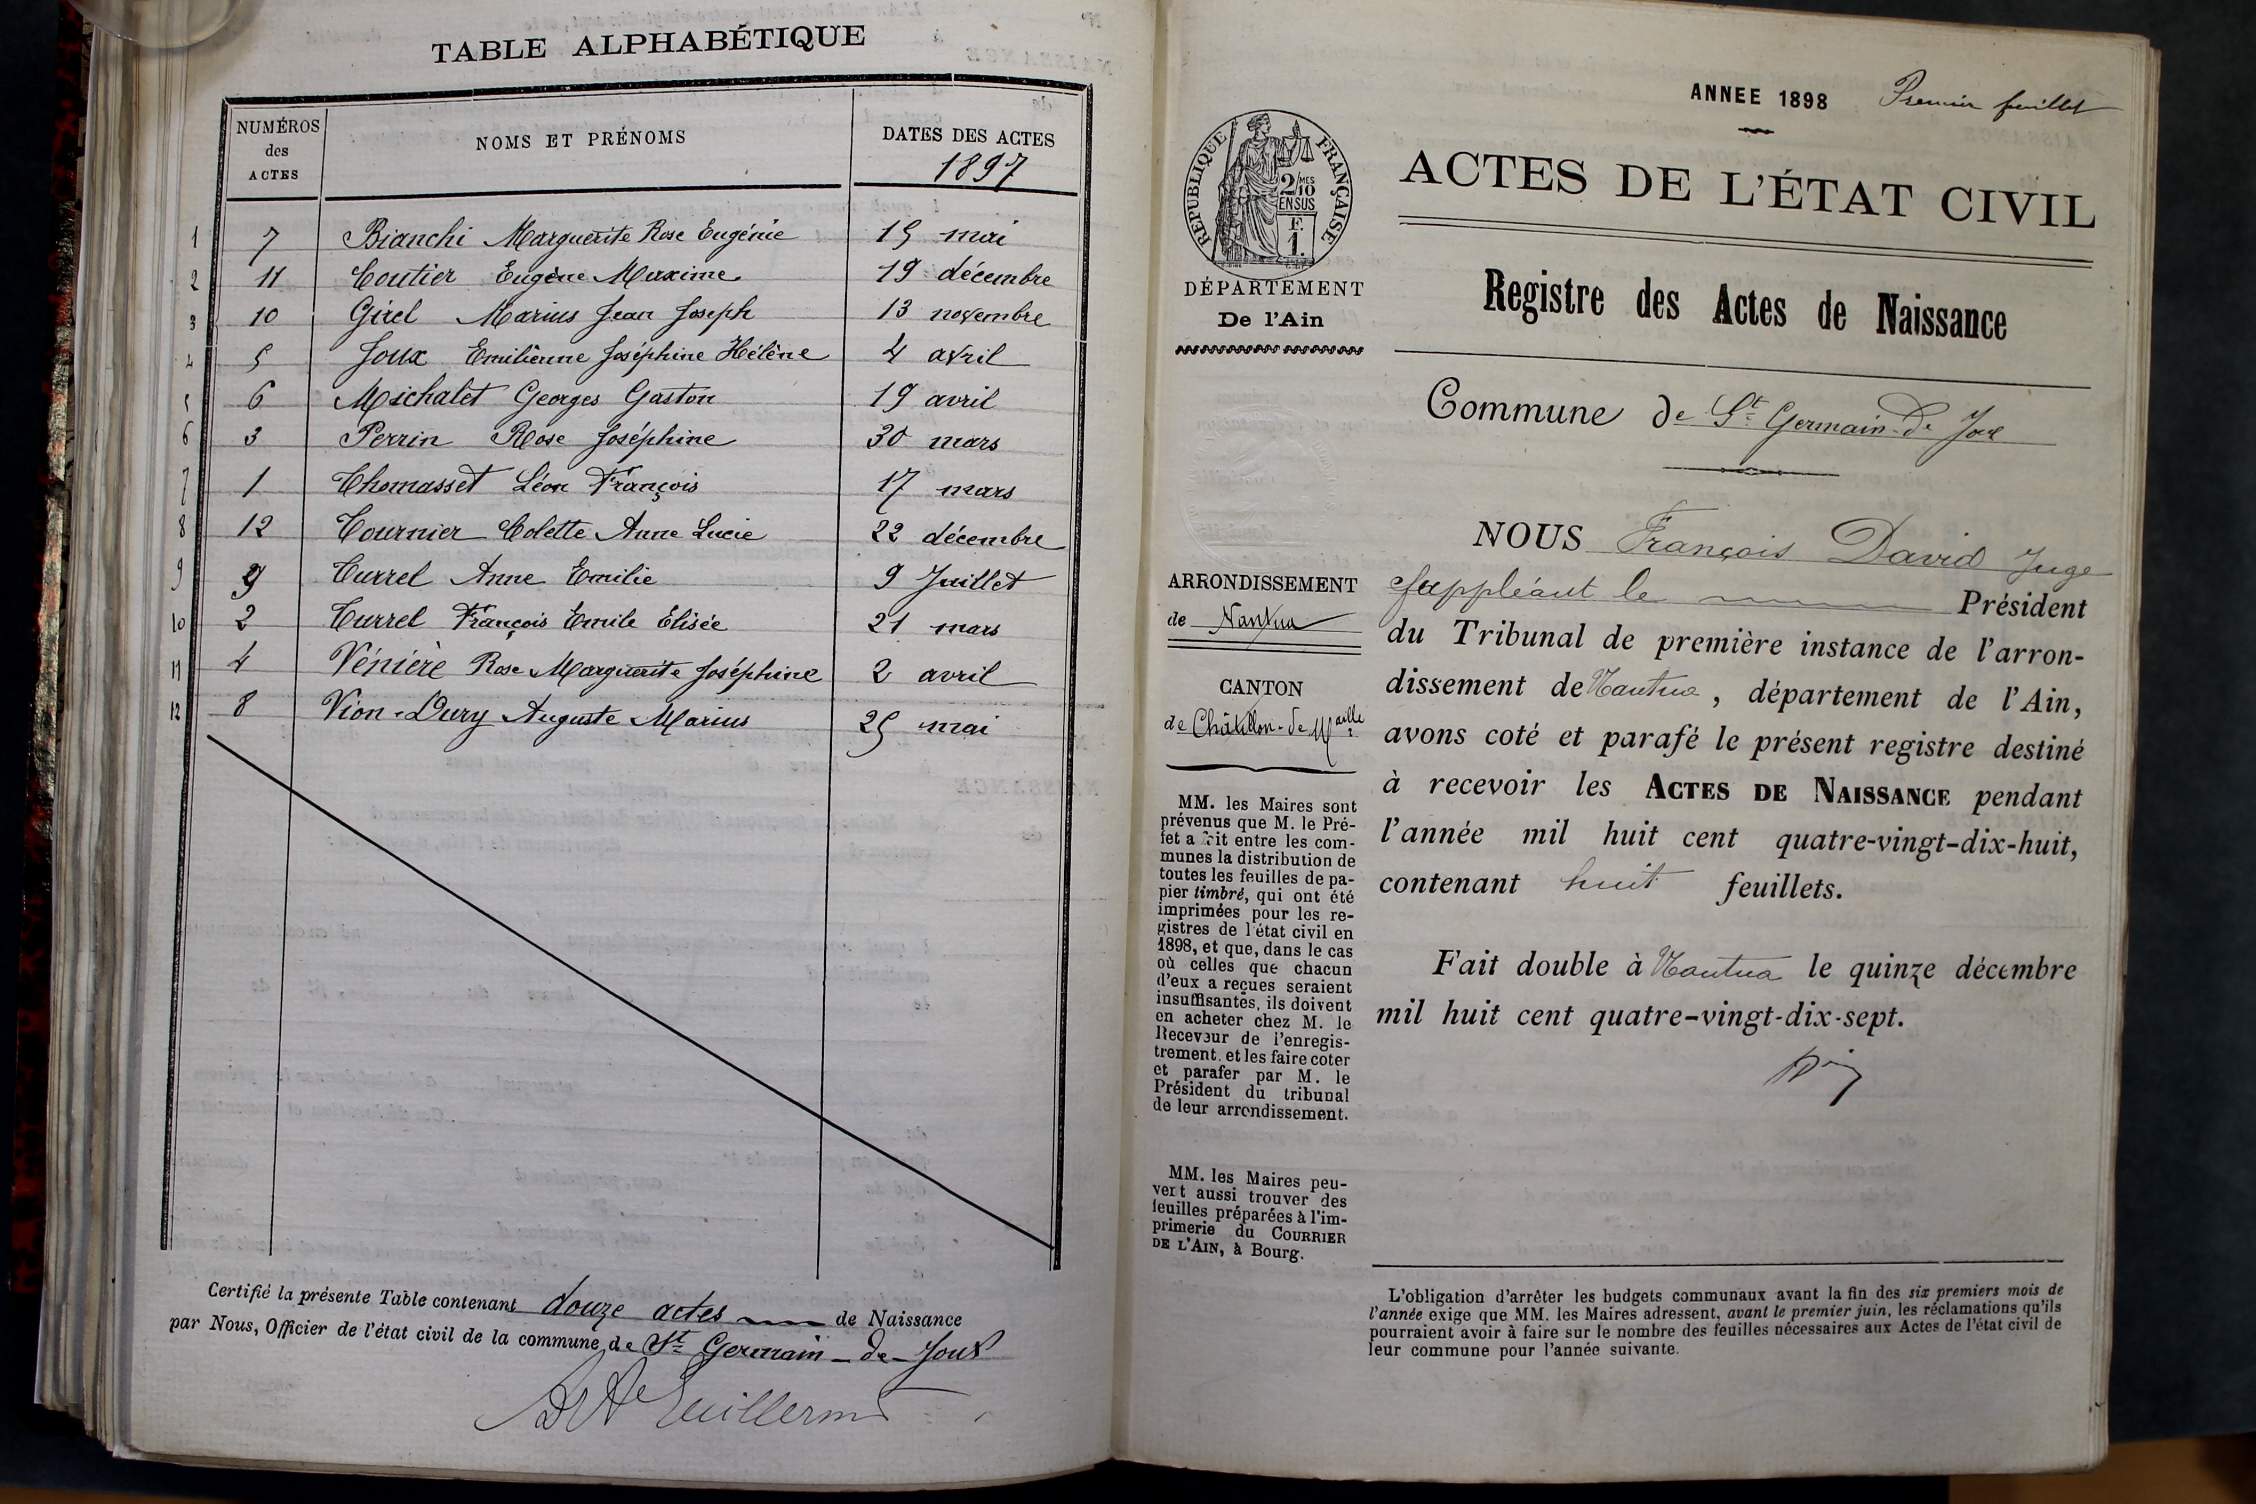 TABLE ALPHABÉTIQUE
NUMÉROS des ACTES NOMS ET PRÉNOMS DATES DES ACTES
1897
1 7 Bianchi Marguerite Rose Eugénie 15 mai
2 11 Coutier Eugène Maxime 19 décembre
3 10 Girel Marius Jean Joseph 13 novembre
4 5 Joux Emilienne Joséphine Hélène 4 avril
5 6 Michalet Georges Gaston 19 avril
6 3 Perrin Rose Joséphine 30 mars
7 1 Thomasset Léon François 17 mars
8 12 Tournier Colette Anne Lucie 22 décembre
9 9 Turrel Anne Emilie 9 Juillet
10 2 Turrel François Emile Elisée 21 mars
11 4 Vénière Rose Marguerite Joséphine 2 avril
12 8 Vion-Dury Auguste Marius 25 mai
Certifié la présente Table contenant douze actes de Naissance
par Nous, Officier de l'état civil de la commune de St Germain-de-Joux
Guillermo
ANNEE 1898 Premier feuillet
RÉPUBLIQUE FRANÇAISE
2/10 MES
EN SUS
F.
1.
ACTES DE L'ÉTAT CIVIL
DÉPARTEMENT
De l'Ain
Registre des Actes de Naissance
Commune de St Germain-de Joux
NOUS François David Juge
Suppléant le Président
du Tribunal de première instance de l'arron-
dissement de Nantua, département de l'Ain,
avons coté et parafé le présent registre destiné
à recevoir les ACTES DE NAISSANCE pendant
l'année mil huit cent quatre-vingt-dix-huit,
contenant huit feuillets.
Fait double à Nantua le quinze décembre
mil huit cent quatre-vingt-dix-sept.
ARRONDISSEMENT
de Nantua
CANTON
de Châtillon-de Maille
MM. les Maires sont
prévenus que M. le Pré-
fet a fait entre les com-
munes la distribution de
toutes les feuilles de pa-
pier timbré, qui ont été
imprimées pour les re-
gistres de l'état civil en
1898, et que, dans le cas
où celles que chacun
d'eux a reçues seraient
insuffisantes, ils doivent
en acheter chez M. le
Receveur de l'enregis-
trement. et les faire coter
et parafer par M. le
Président du tribunal
de leur arrondissement.
MM. les Maires peu-
vent aussi trouver des
feuilles préparées à l'im-
primerie du COURRIER
DE L'AIN, à Bourg.
L'obligation d'arrêter les budgets communaux avant la fin des six premiers mois de
l'année exige que MM. les Maires adressent, avant le premier juin, les réclamations qu'ils
pourraient avoir à faire sur le nombre des feuilles nécessaires aux Actes de l'état civil de
leur commune pour l'année suivante.